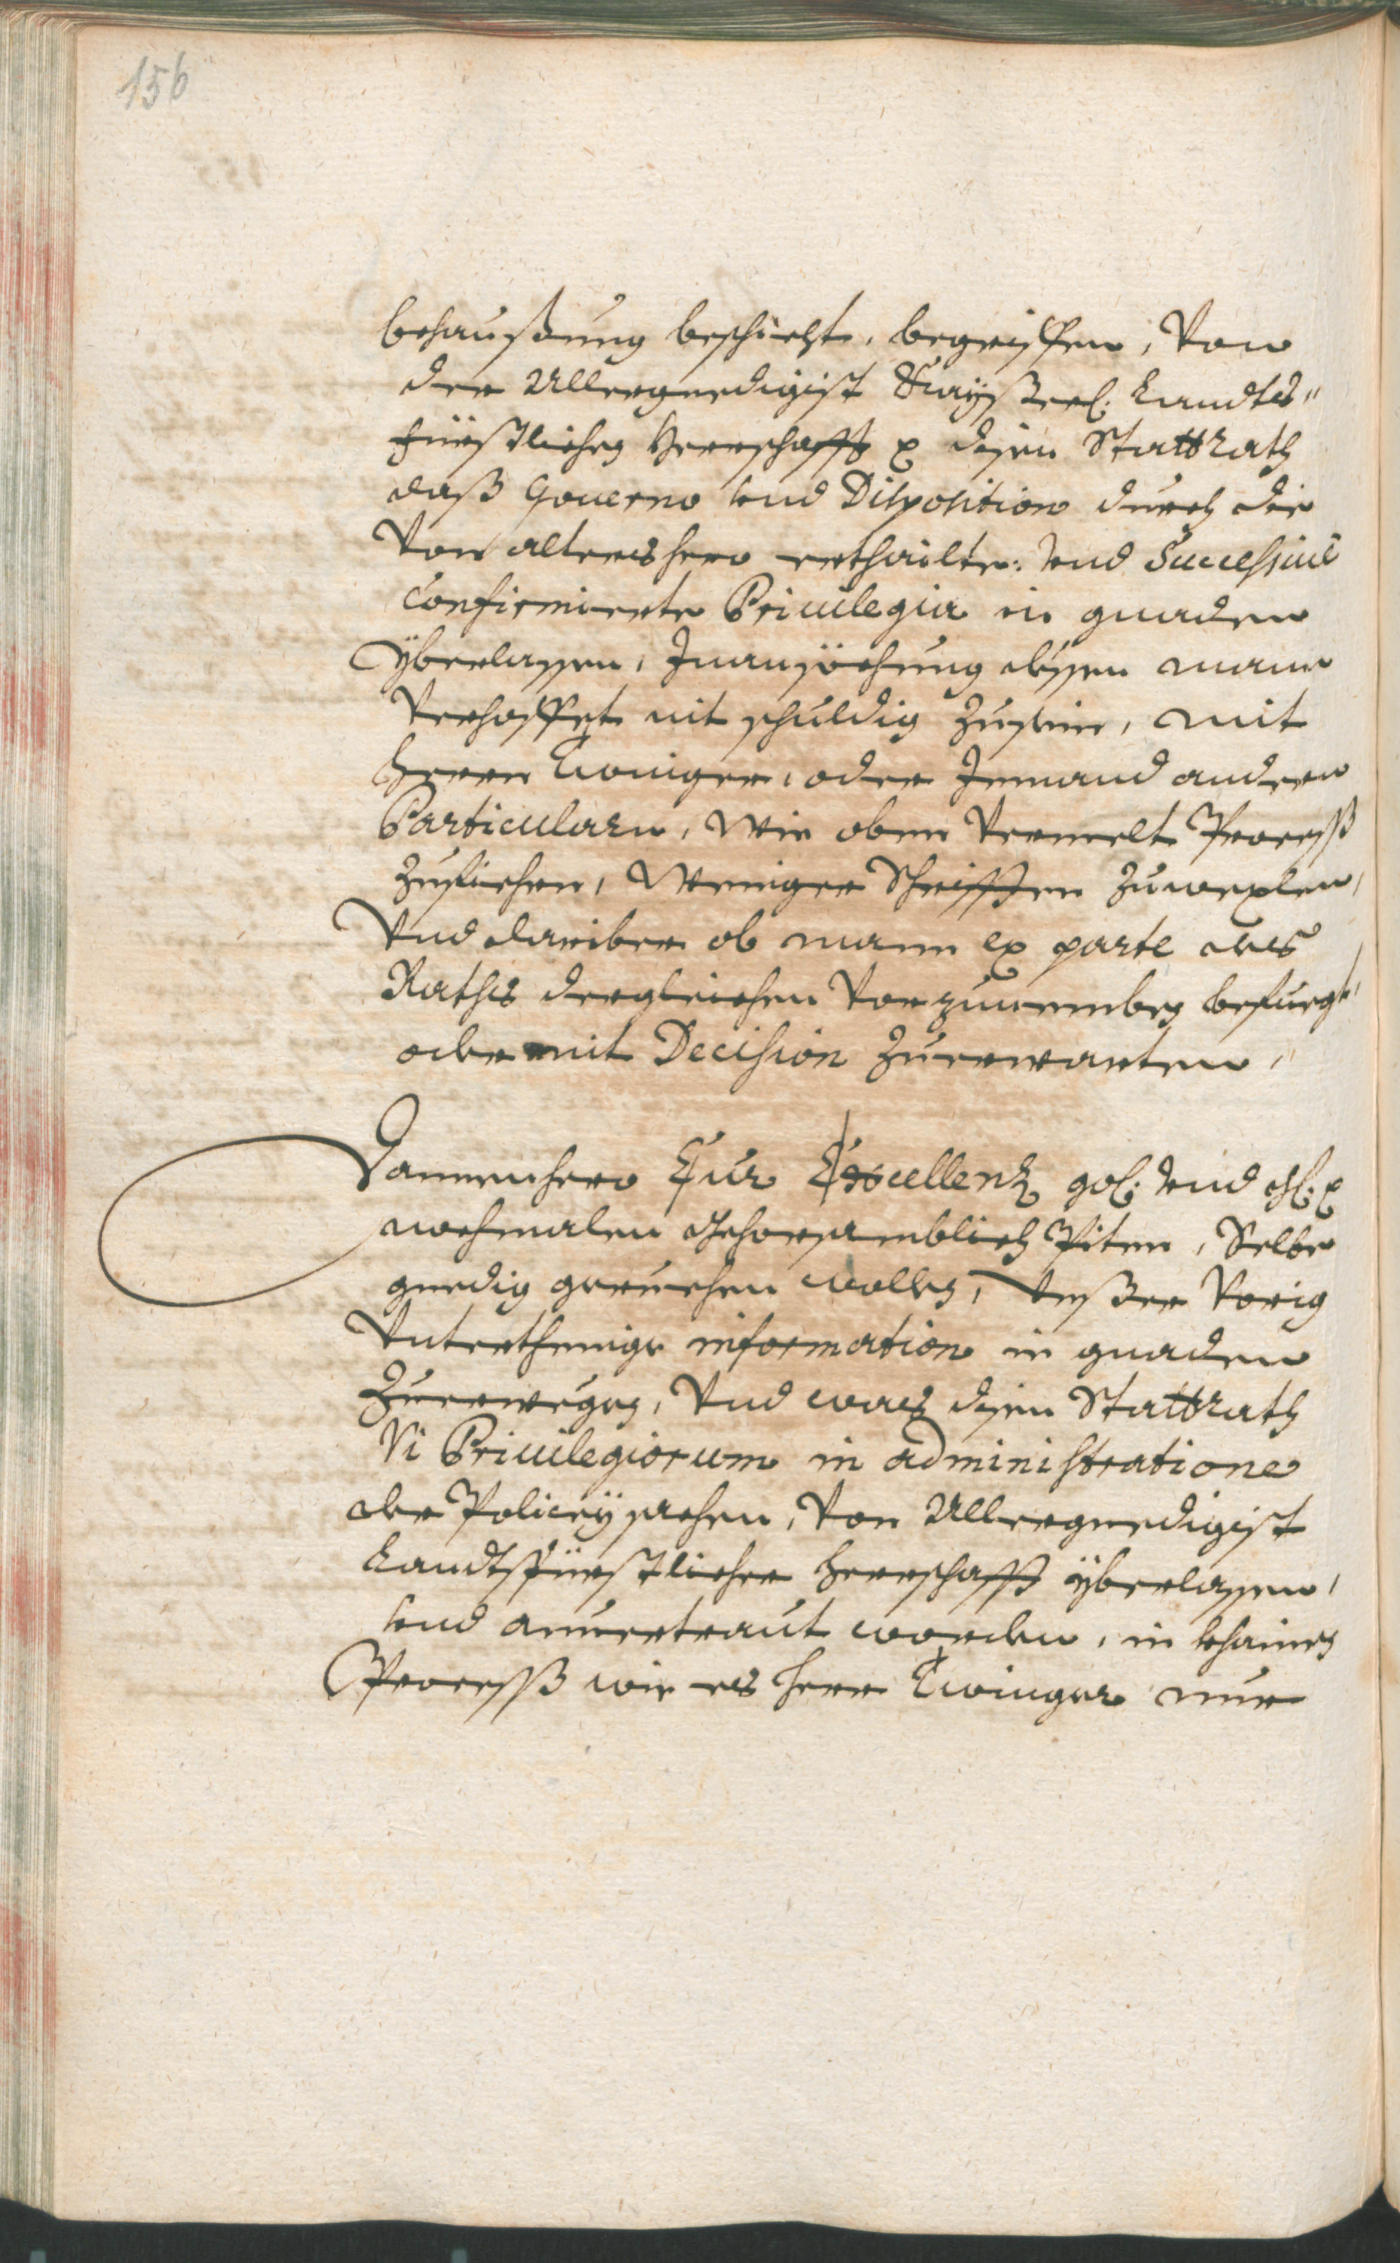 156
behaußung beschicht, begriffen, Von
der Allergnedigist Kaÿßerl: Landts"
fürstlichen Herrschafft ꝛc disem Stattrath
daß Gouerno vnd Disposition durch die
Von altershero erthailte: vnd Successiuè
confirmierte Priuilegia in gnaden
ÿberlassen, In ansöchung dessen mann
Verhoffet nit schuldig Zusein, mit
Herrn Twinger, oder Jemand andern
Particularn, Wie oben Vermelt Process
Zufiehren, Weniger Schrifften Zuwexlen,
Vnd dariber ob mann ex parte des
Raths dergleichen Vorzunemben befuegt,
oder mit Decision Zuerwarten,"
Dannenhero Eur Excellenz gdl: vnd hl: ꝛc
nochmalen gehorsamblich Piten, Selbe
gnedig geruehen wollen, Vnßer Vorig
Vnterthenige information in gnaden
Zuerwegen, Vnd was disem Stattrath
Vi Priuilegiorum in administratione
der Policeÿ sachen, Von Allergnedigist
Landtsfürstlicher Herrschafft ÿberlassen,
vnd anuertraut worden, in khainen
Process wie es Herr Twinger nur